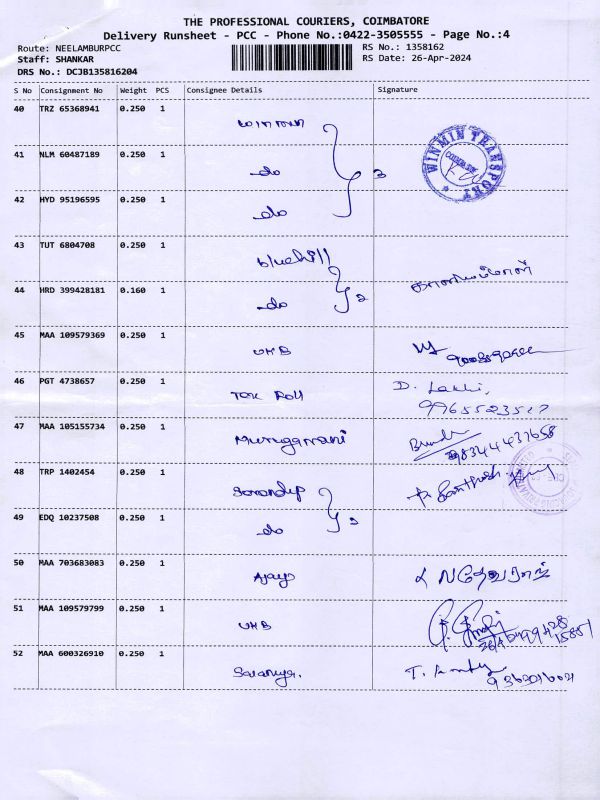 THE PROFESSIONAL COURIERS, COIMBATORE
Delivery Runsheet - PCC - Phone No.:0422-3505555 - Page No.:4
Route: NEELAMBURPCC RS No.: 1358162
Staff: SHANKAR RS Date: 26-Apr-2024
DRS No.: DCJB135816204
S No Consignment No Weight PCS Consignee Details Signature
40 TRZ 65368941 0.250 1
41 NLM 60487189 0.250 1 do 3 WINMIN TRANSPORT
42 HYD 95196595 0.250 1 do
43 TUT 6804708 0.250 1 bluehill
44 HRD 399428181 0.160 1 do 2
45 MAA 109579369 0.250 1 UMB
46 PGT 4738657 0.250 1 Roll D.
47 MAA 105155734 0.250 1
48 TRP 1402454 0.250 1 Santhosh
49 EDQ 10237508 0.250 1 do 2
50 MAA 703683083 0.250 1 Ajay
51 MAA 109579799 0.250 1 UMB
52 MAA 600326910 0.250 1 Saranya. T.